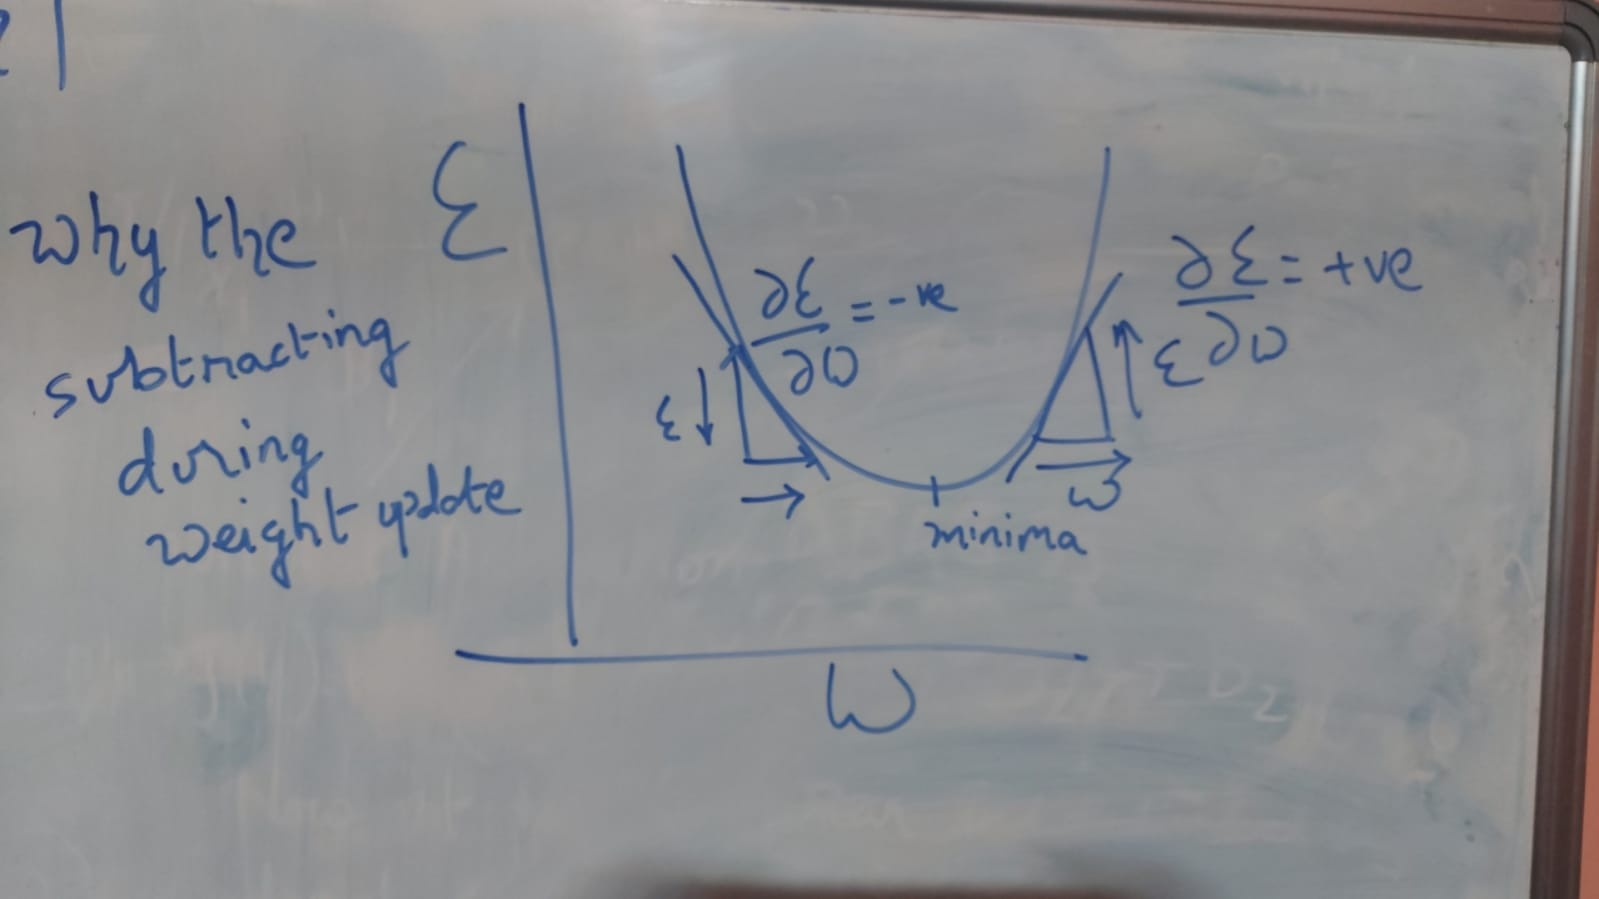 why the
subtracting
during
weight update
Ɛ
∂Ɛ/∂W = -ve
Ɛ↓
→
minima
∂Ɛ/∂W = +ve
↑Ɛ
→
W
W